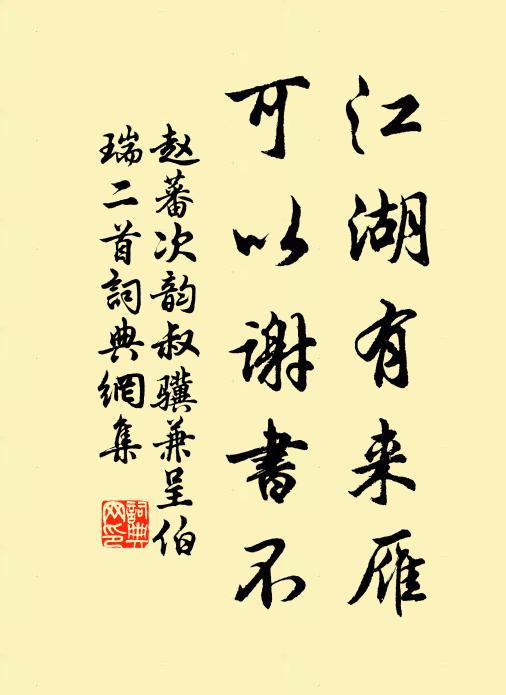 江湖有来雁
可以谢書不
赵蕃次韵叔骥兼呈伯
瑞二首詞典網集
詞典
网印